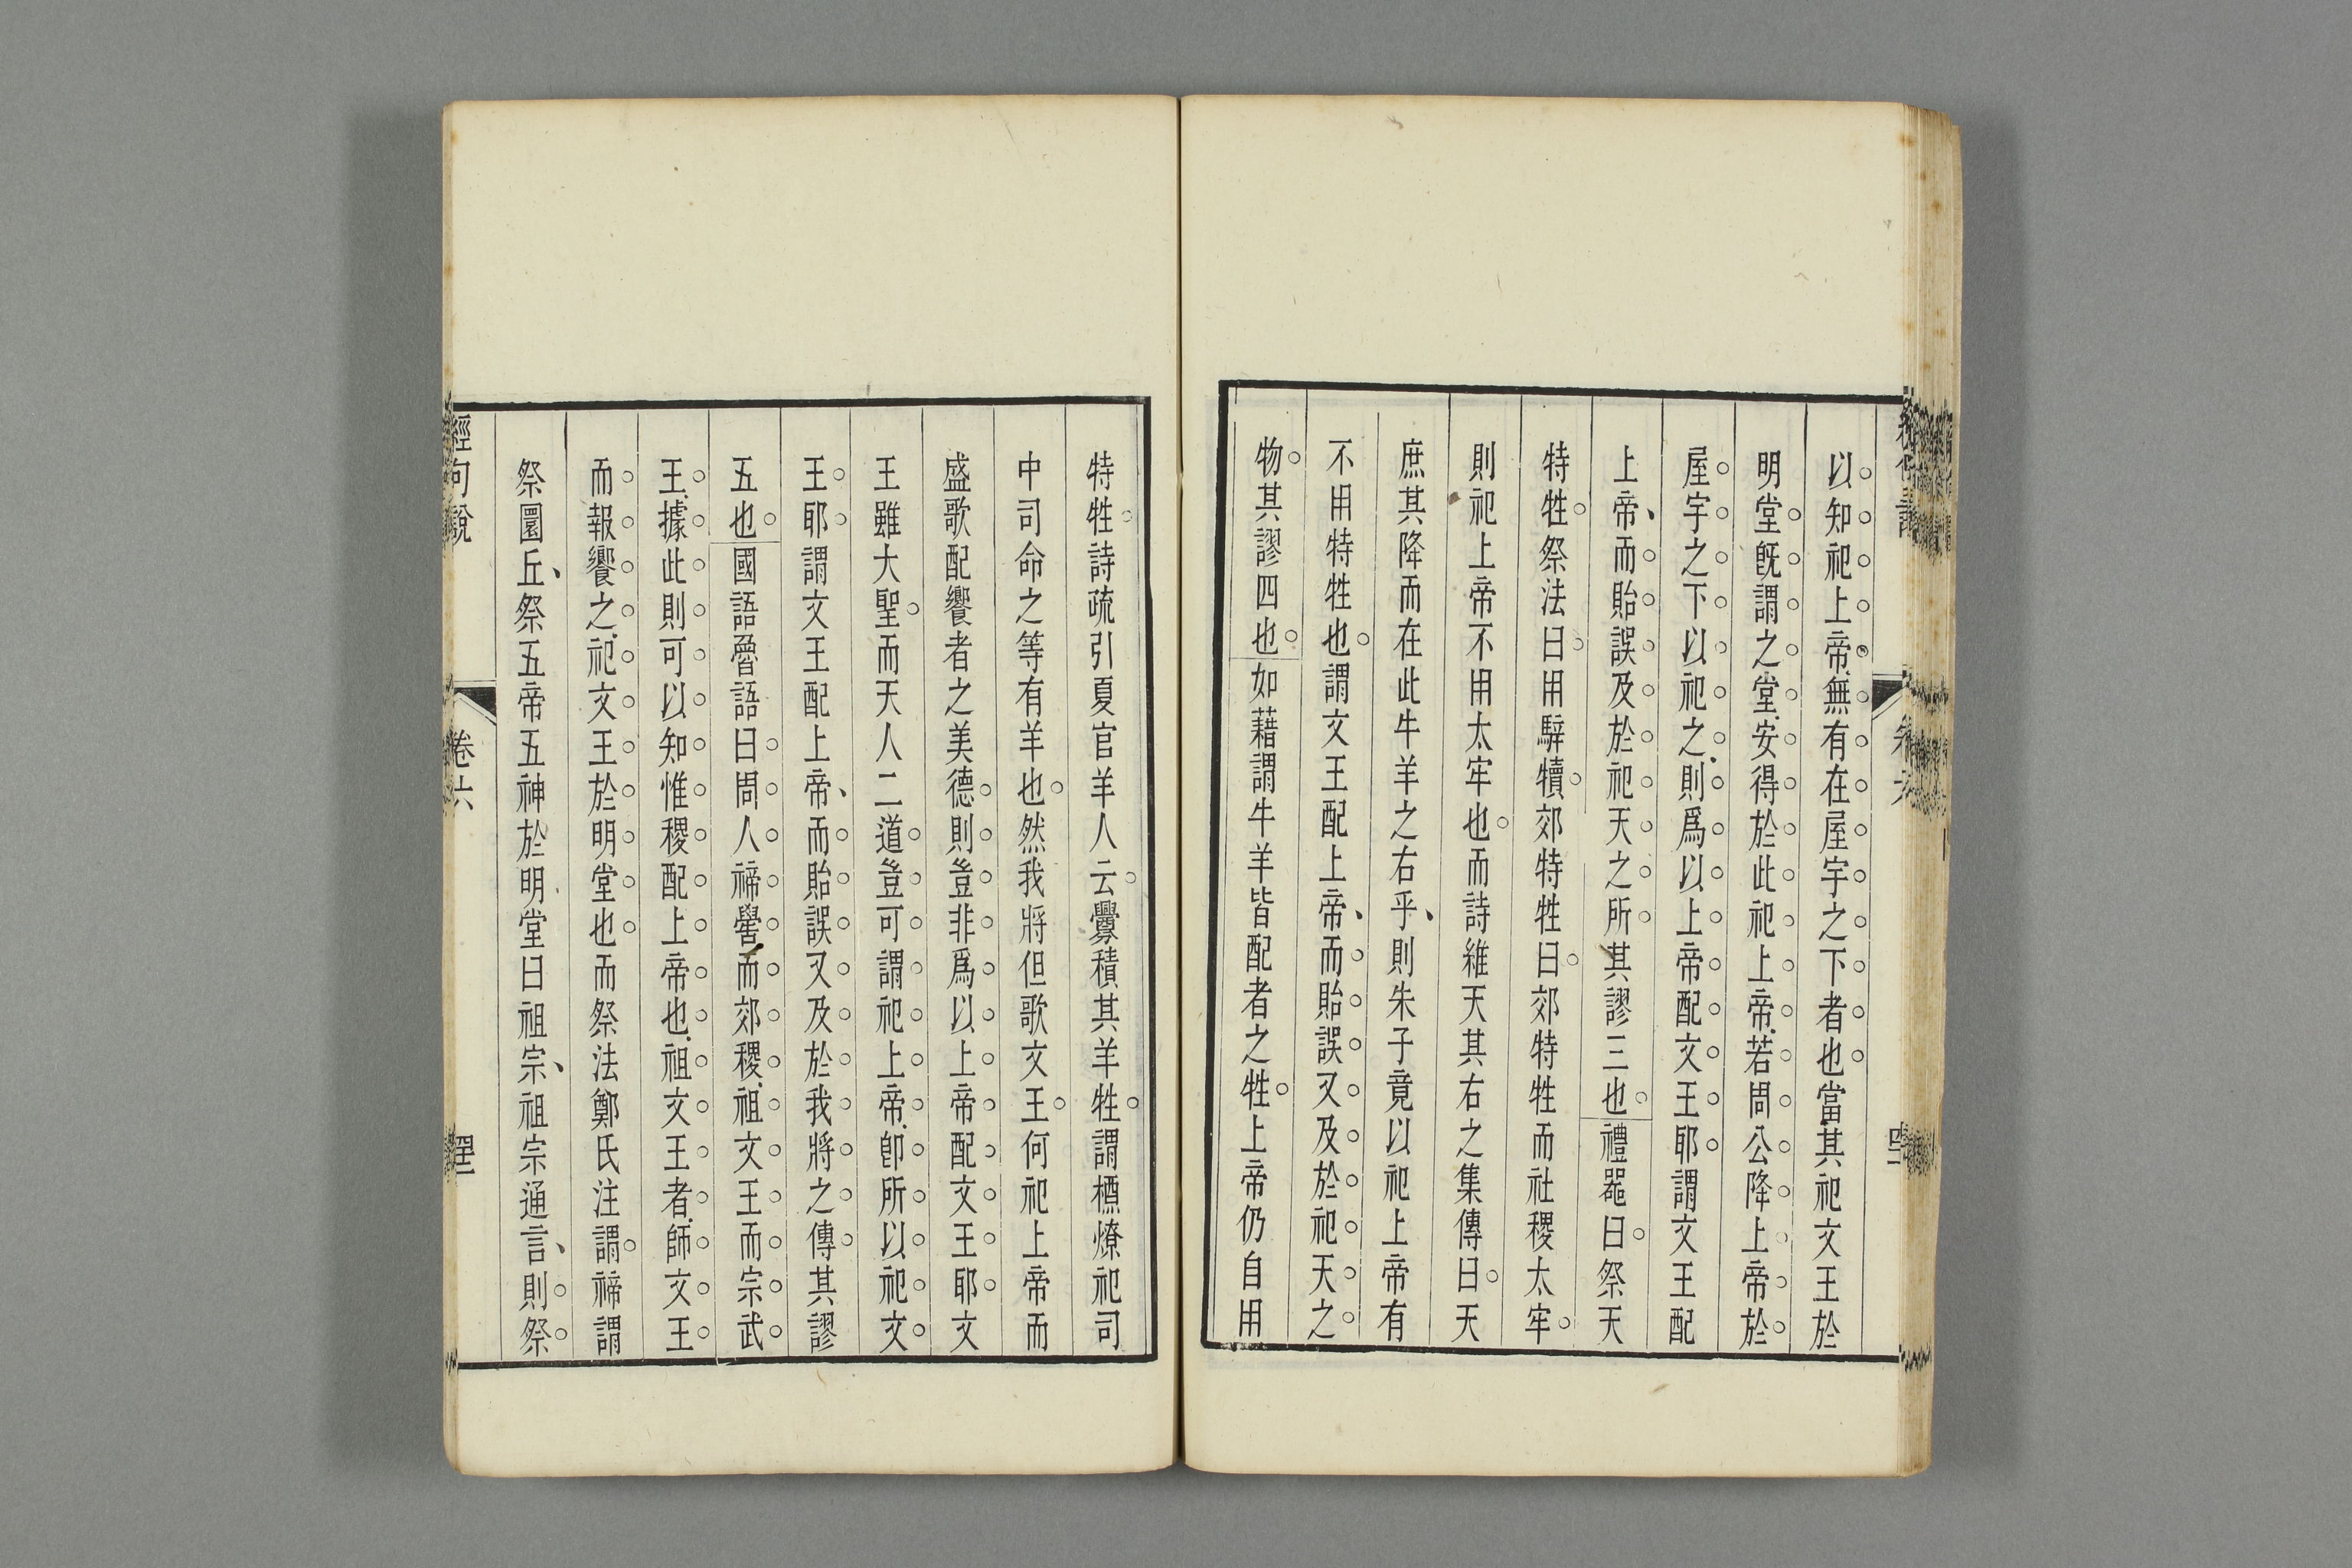 以知祀上帝無有在屋宇之下者也當其祀文王於
明堂旣謂之堂安得於此祀上帝若周公降上帝於
屋宇之下以祀之則爲以上帝配文王耶謂文王配
上帝而貽誤及於祀天之所其謬三也禮器曰祭天
特牲祭法曰用騂犢郊特牲曰郊特牲而社稷太牢
則祀上帝不用太牢也而詩維天其右之集傳曰天
庶其降而在此牛羊之右乎則朱子竟以祀上帝有
不用特牲也謂文王配上帝而貽誤又及於祀天之
物其謬四也如藉謂牛羊皆配者之牲上帝仍自用
特牲詩疏引夏官羊人云釁積其羊牲謂槱燎祀司
中司命之等有羊也然我將但歌文王何祀上帝而
盛歌配饗者之美德則豈非爲以上帝配文王耶文
王雖大聖而天人二道豈可謂祀上帝卽所以祀文
王耶謂文王配上帝而貽誤又及於我將之傳其謬
五也國語魯語曰周人禘嚳而郊稷祖文王而宗武
王據此則可以知惟稷配上帝也祖文王者師文王
而報饗之祀文王於明堂也而祭法鄭氏注謂禘謂
祭圜丘祭五帝五神於明堂曰祖宗祖宗通言則祭
經句說
卷六